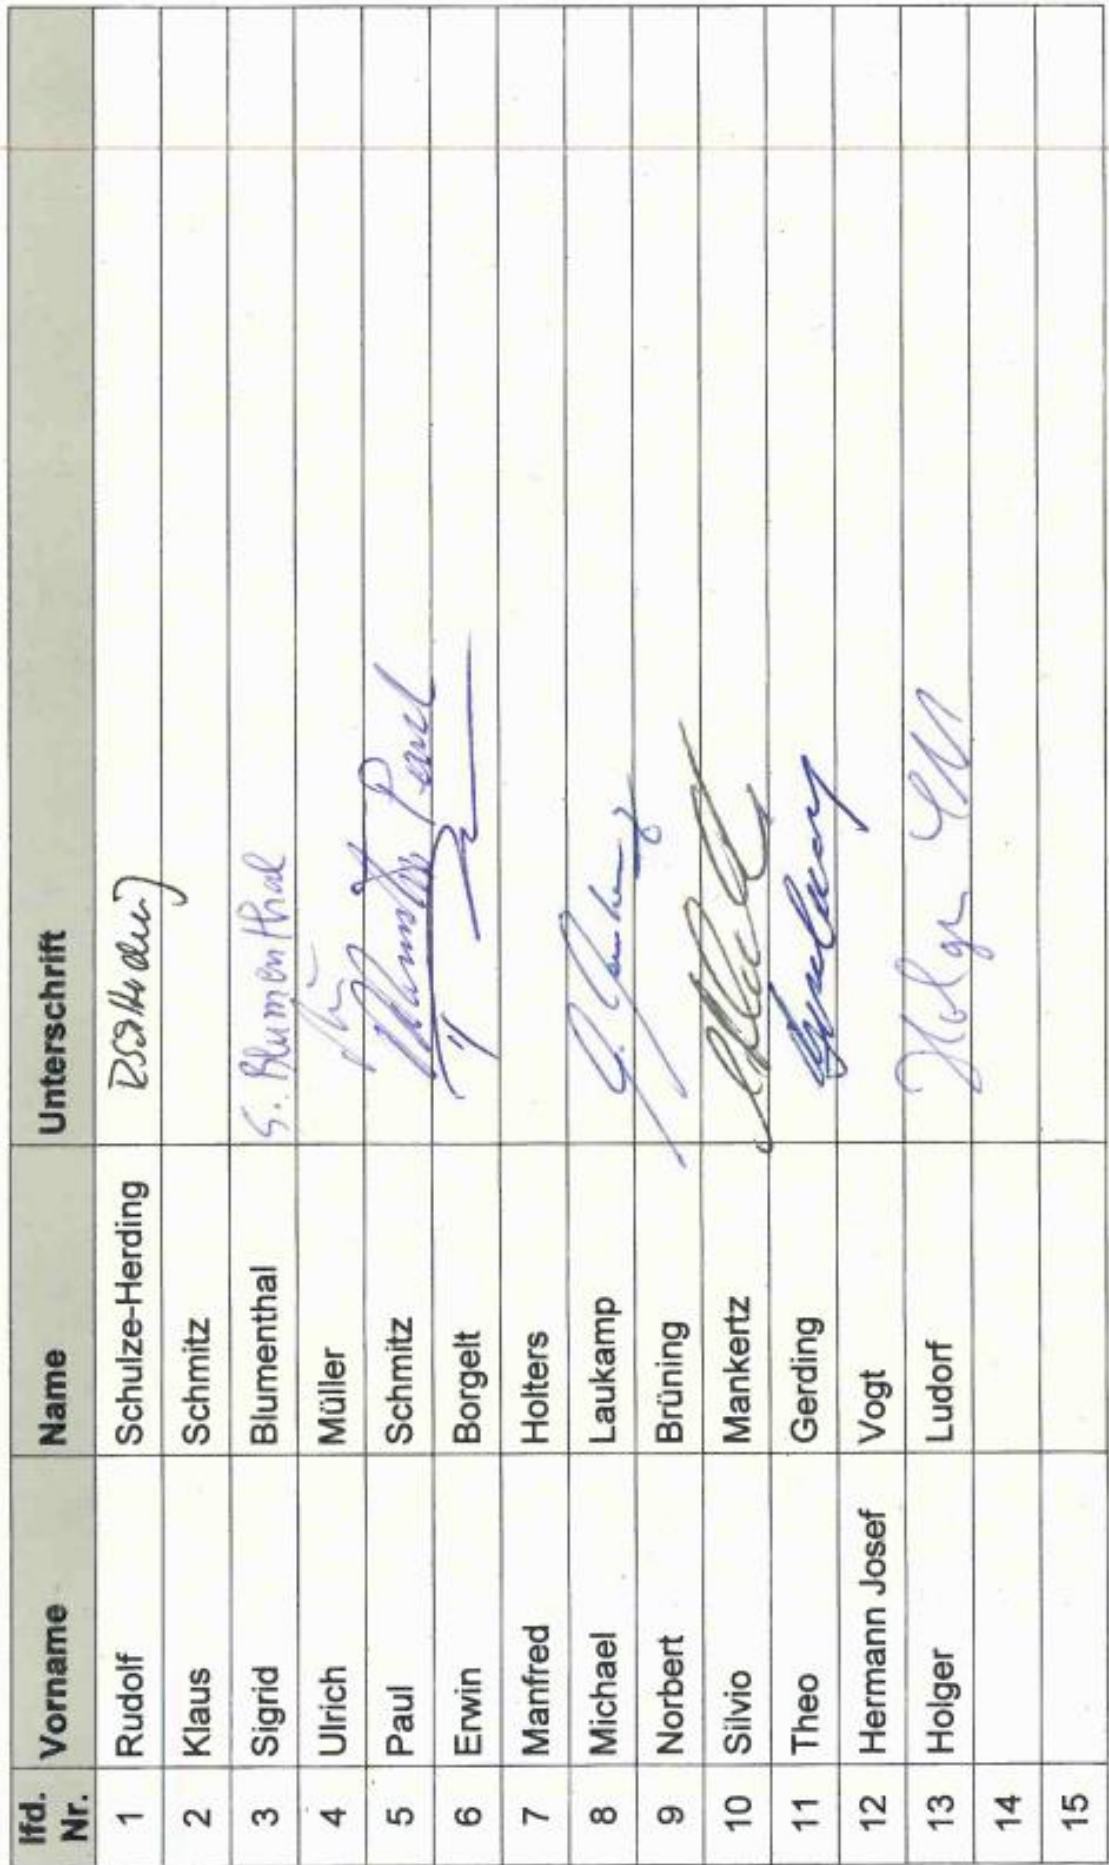 lfd. Nr. Vorname Name Unterschrift
1 Rudolf Schulze-Herding
2 Klaus Schmitz
3 Sigrid Blumenthal S. Blumenthal
4 Ulrich Müller
5 Paul Schmitz Schmitz Paul
6 Erwin Borgelt
7 Manfred Holters
8 Michael Laukamp
9 Norbert Brüning
10 Silvio Mankertz
11 Theo Gerding
12 Hermann Josef Vogt
13 Holger Ludorf Holger
14
15